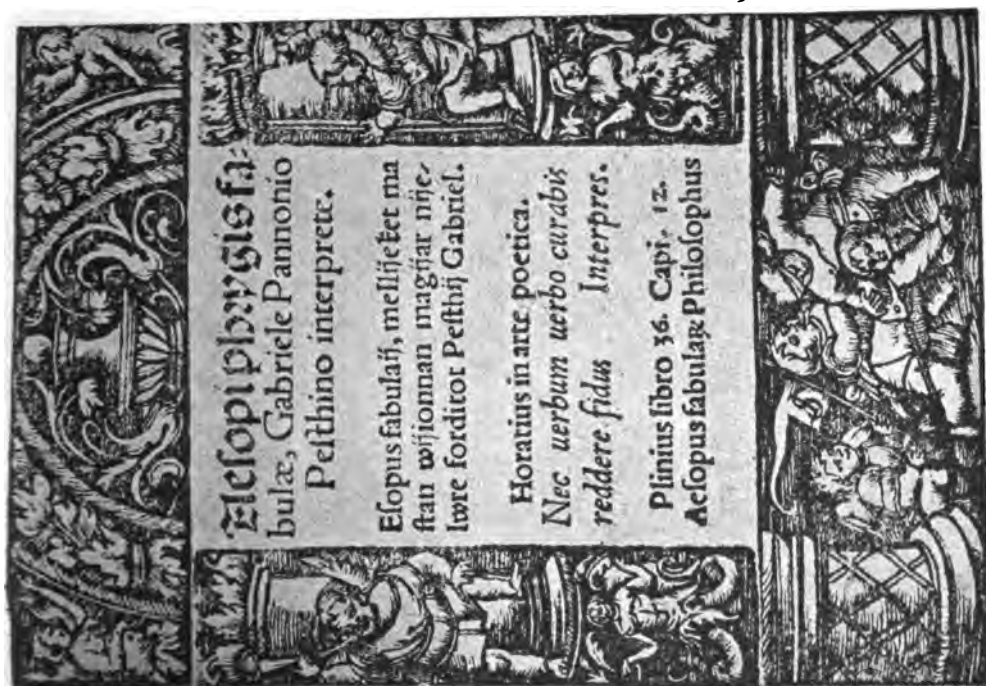 Aesopi phrygis fa⸗
bulæ, Gabriele Pannonio
Pesthino interprete.
Esopus fabulaij, mellijeket ma
ſtan wijionnan magijar nije⸗
lwre forditot Peſthij Gabriel.
Horatius in arte poetica.
Nec uerbum uerbo curabis
reddere fidus Interpres.
Plinius libro 36. Capi. 12.
Aeſopus fabulaꝝ Philoſophus